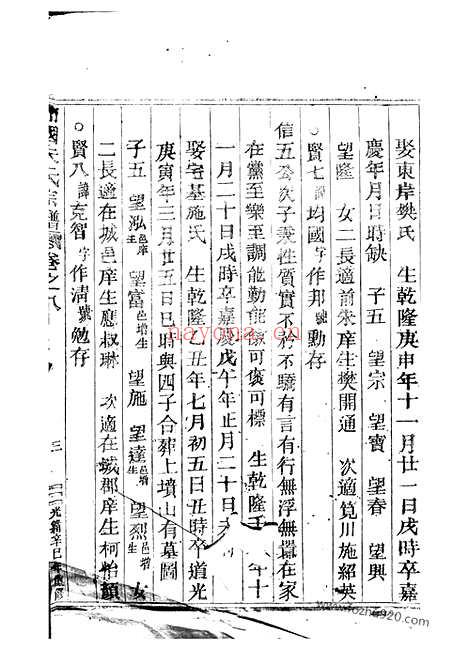 娶東岸樊氏 生乾隆庚申年十一月廿一日戌時卒嘉
慶年月日時缺 子五 望宗 望寶 望春 望興
望隆 女二長適前朱庠生樊開通 次適筧川施紹英
○賢七諱均國字作邦號勳存
信五公次子秉性質實不矜不驕有言有行無浮無囂在家
在黨至樂至調能勤能儉可褒可標 生乾隆壬 年十
一月二十日戌時卒嘉慶戊午年正月二十日
娶宅基施氏 生乾隆丑年七月初五日丑時卒道光
庚寅年三月廿五日巳時與四子合葬上墳山有墓圖
子五 望泓邑庠生 望富邑增生 望施 望達邑增生 望烈邑增生 女
二長適在城邑庠生應叔琳 次適在城郡庠生柯怡顏
○賢八諱克智字作清號勉存
氏宗譜 卷之八 三 光緒辛巳年
nayona.cn
www.foxzhe920.com